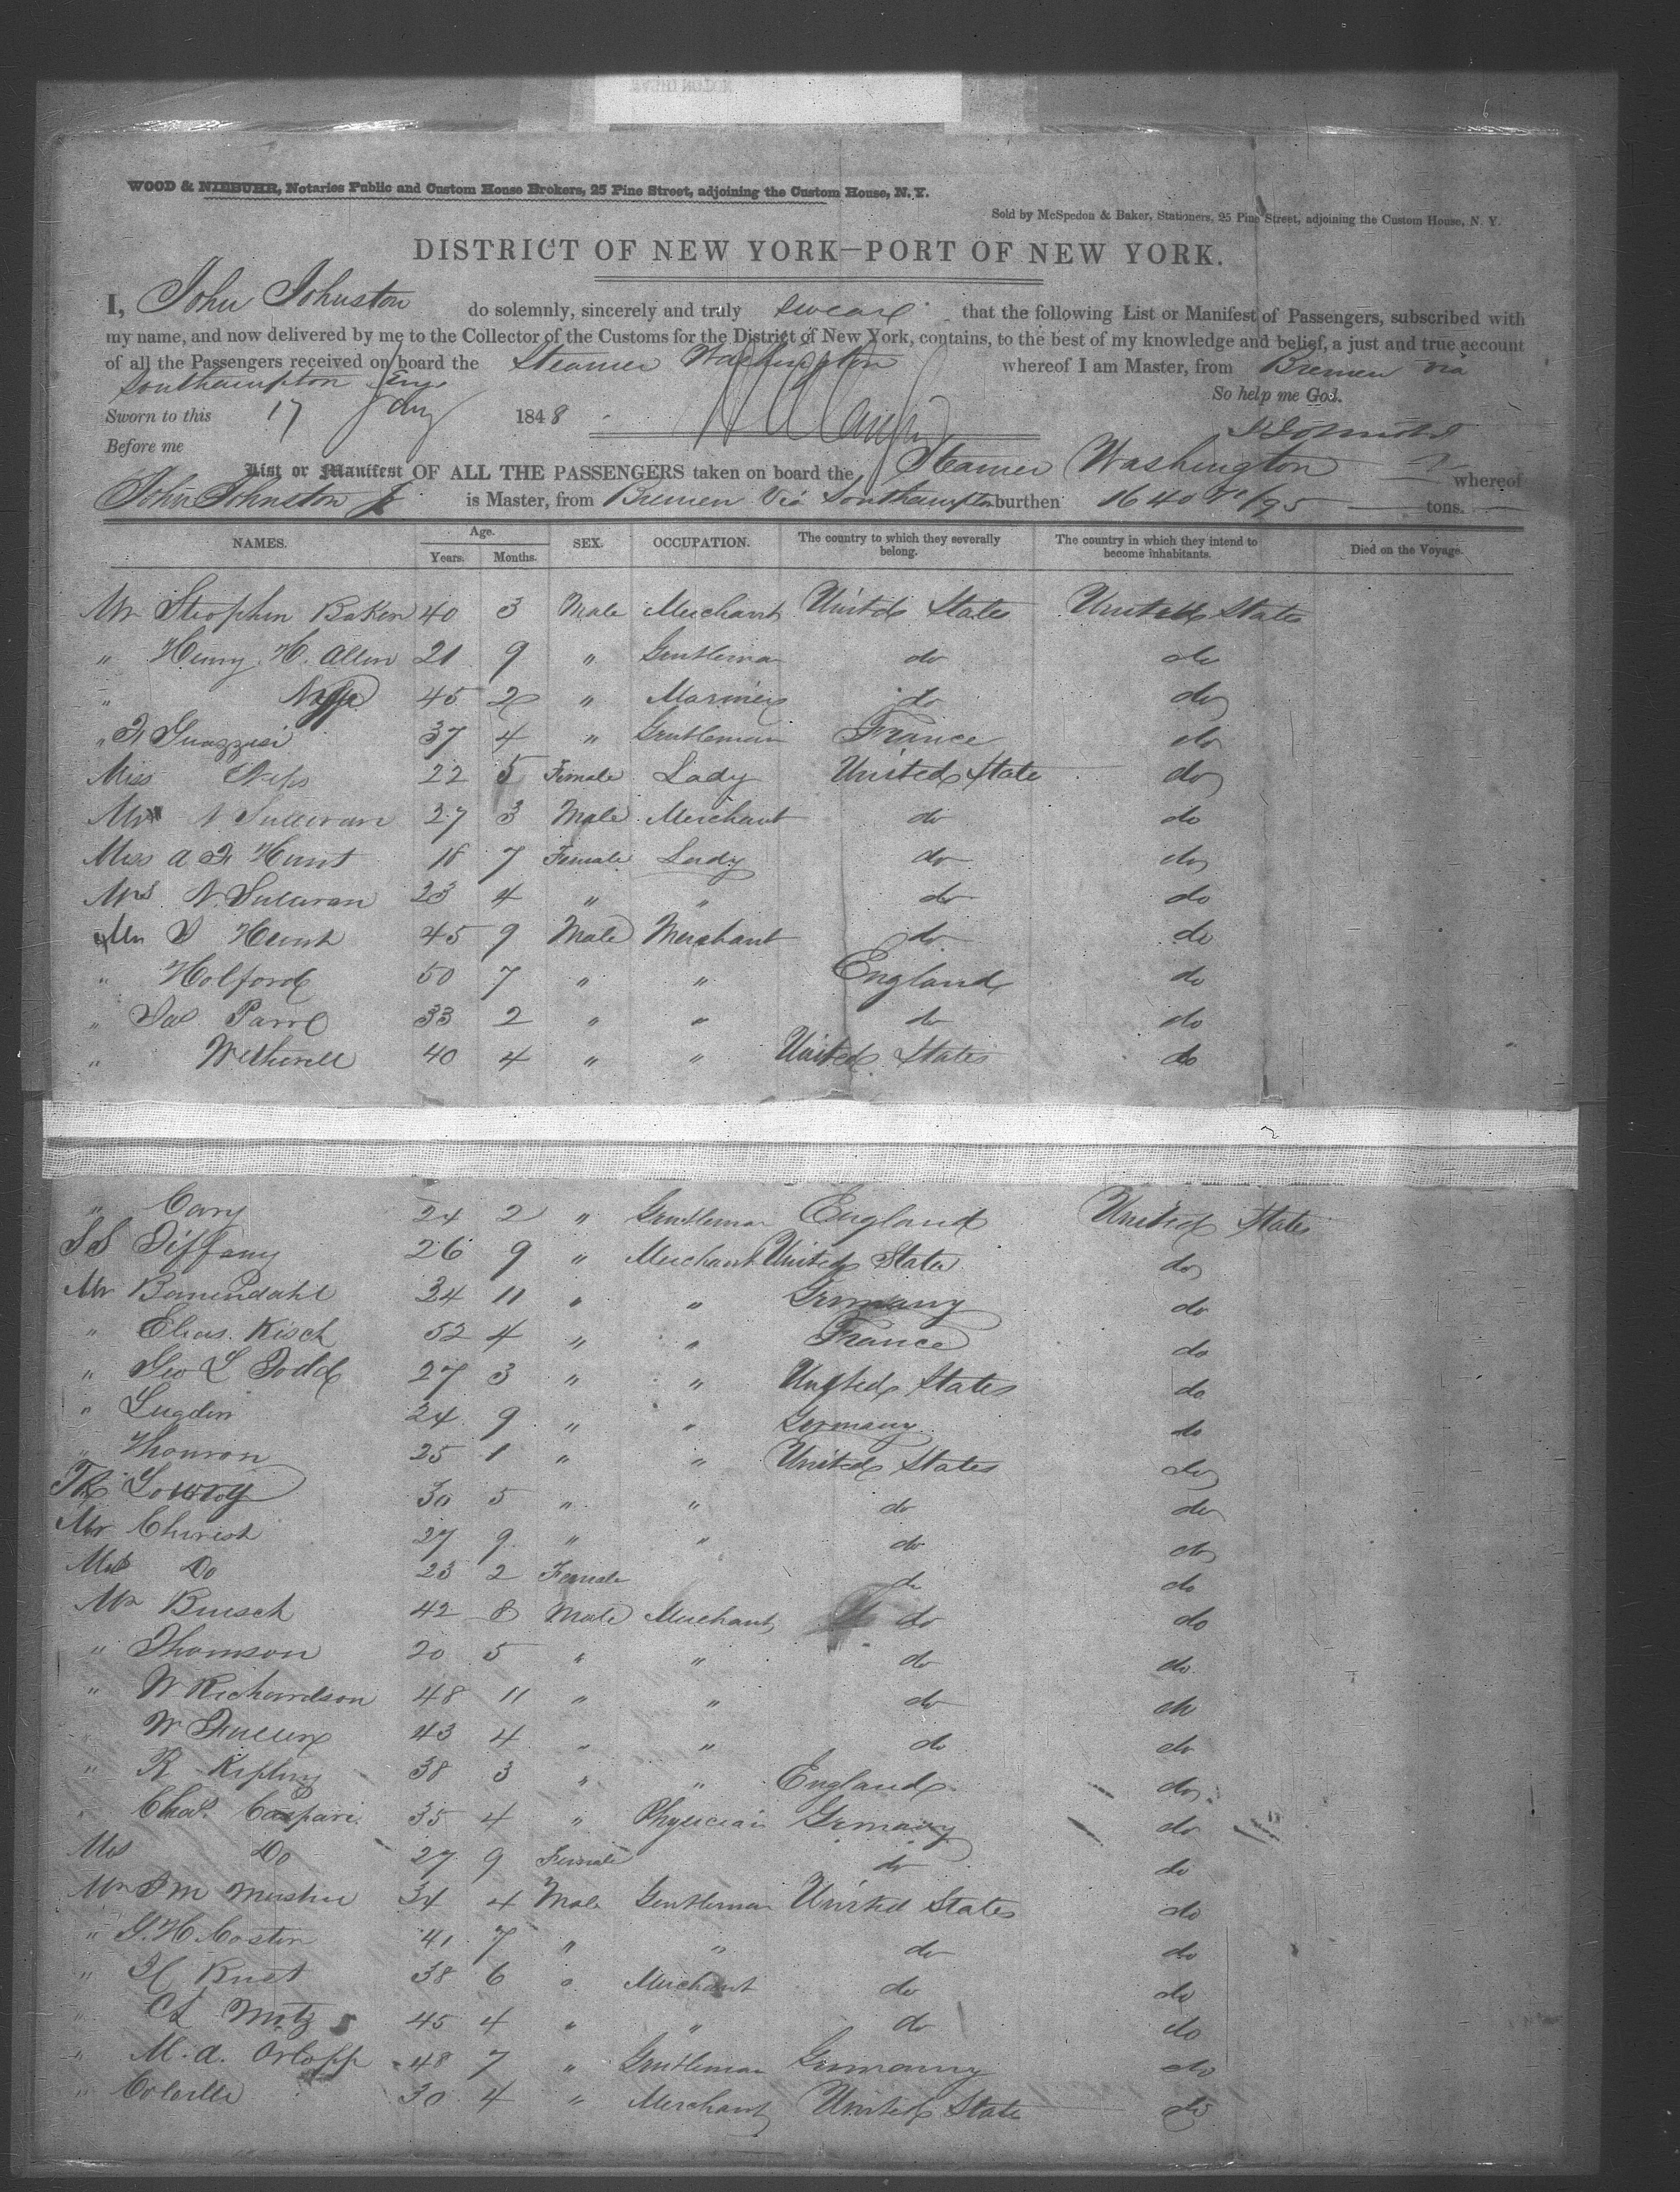 WOOD & NIEBUHR, Notaries Public and Custom House Brokers, 25 Pine Street, adjoining the Custom House, N. Y.
Sold by McSpedon & Baker, Stationers, 25 Pine Street, adjoining the Custom House, N. Y.
DISTRICT OF NEW YORK—PORT OF NEW YORK.
I, John Johnston do solemnly, sincerely and truly swear that the following List or Manifest of Passengers, subscribed with
my name, and now delivered by me to the Collector of the Customs for the District of New York, contains, to the best of my knowledge and belief, a just and true account
of all the Passengers received on board the Steamer Washington whereof I am Master, from Bremen via
Southampton Eng
So help me God.
Sworn to this 17 Jany 1848
Before me
List or Manifest OF ALL THE PASSENGERS taken on board the Steamer Washington whereof
John Johnston Jr is Master, from Bremen Via Southampton burthen 1640 /95 tons.
NAMES. Age. Years. Months. SEX. OCCUPATION. The country to which they severally belong. The country in which they intend to become inhabitants. Died on the Voyage.
Mr Stephen Baker 40 3 Male Merchant United States United States
" Henry H. Allen 21 9 " Gentleman do do
" 45 2 " Mariner do do
" Guazzesi 37 4 " Gentleman France do
Miss 22 5 Female Lady United State do
Mr N Sullivan 27 3 Male Merchant do do
Miss A F Hunt 18 7 Female Lady do do
Mrs N. Sullivan 23 4 " " do do
Mr Hunt 45 9 Male Merchant do do
" Holford 50 7 " " England do
" Jas Parr 33 2 " " do do
" Wetherell 40 4 " " United States do
" Cary 24 2 " Gentleman England United States
S S Tiffany 26 9 " Merchant United States do
Mr 24 11 " " Germany do
" Elias Kisch 52 4 " " France do
" Geo L Todd 27 3 " " United States do
" 24 9 " " Germany do
" Thouron 25 1 " " United States do
Lowry 30 5 " " do do
Mr Christ 27 9 " " do do
Mrs Do 23 2 Female do do
Mr Buesch 42 8 Male Merchant do do
" Thomson 20 5 " " do do
" W Richardson 48 11 " " do do
W Fuller 43 4 " " do do
" R Kipling 38 3 " " England do
" Chas. Caspari 35 4 " Physician Germany do
Mrs Do 27 9 Female do do
Mr 34 4 Male Gentleman United States do
" G. H. Coster 41 7 " " do do
" 38 6 " Merchant do do
" 45 4 " " do do
" M. A. Orlopp 48 7 " Gentleman Germany do
" Colville 30 4 " Merchant United State do